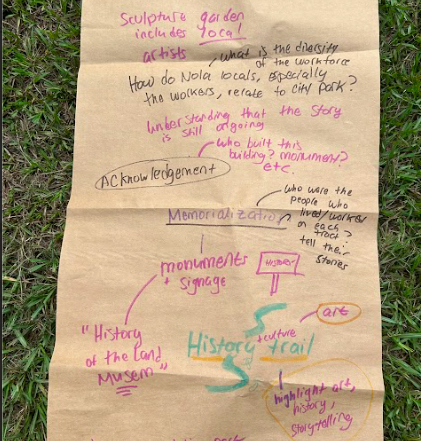 Sculpture garden
includes local
artists
what is the diversity
of the workforce
How do Nola locals, especially
the workers, relate to City Park?
Understanding that the story
is still ongoing
who built this
building? monument?
etc.
Acknowledgement
who were the
people who
lived/worked
on each
tract?
tell their
stories
Memorialization
monuments
+ signage
History
"History
of the Land
Museum"
art
+ culture
History trail
highlight art,
history,
storytelling